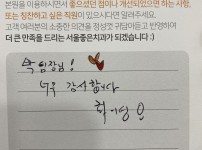 본원을 이용하시면서 좋으셨던 점이나 개선되었으면 하는 사항,
또는 칭찬하고 싶은 직원이 있으시다면 알려주세요.
고객 여러분의 소중한 의견을 정성껏 귀담아듣고 반영하여
더 큰 만족을 드리는 서울좋은치과가 되겠습니다 :)
박 원장님!
너무 감사합니다